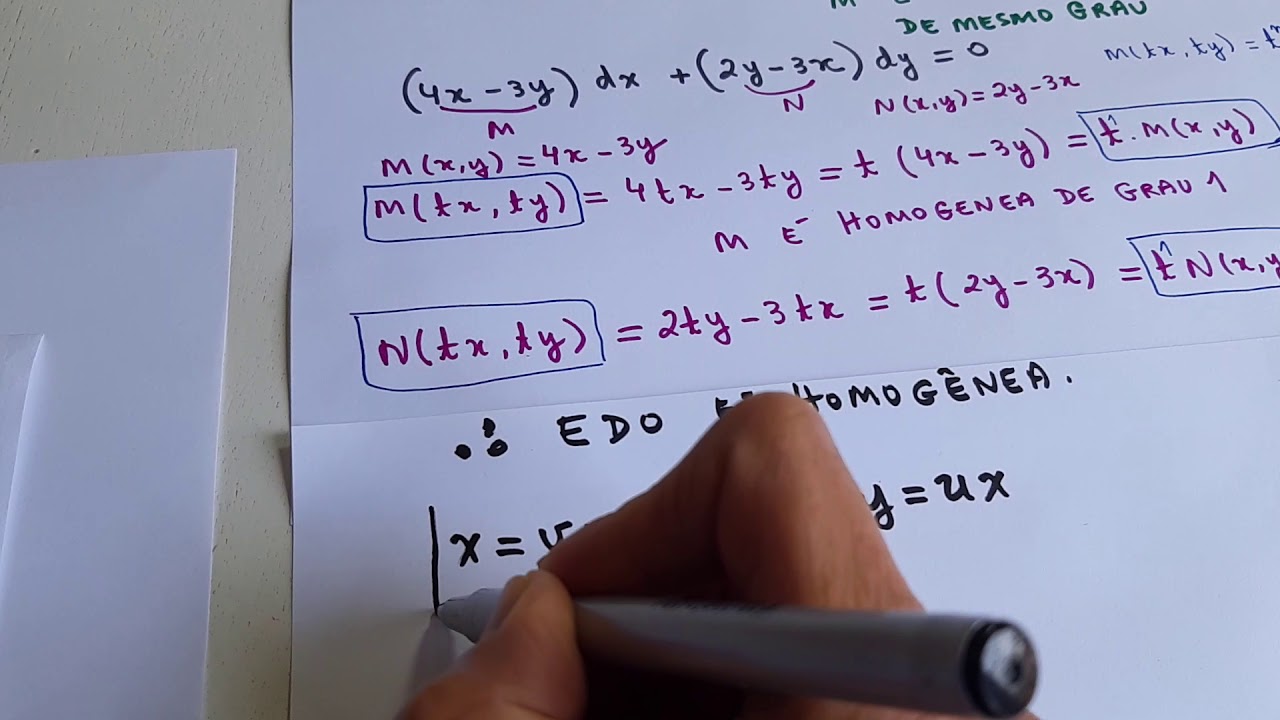 DE MESMO GRAU
(4x - 3y) dx + (2y - 3x) dy = 0
M N
M(tx, ty) = t
N(x,y) = 2y - 3x
M(x,y) = 4x - 3y
M(tx, ty) = 4tx - 3ty = t (4x - 3y) = t¹. M(x,y)
M É HOMOGENEA DE GRAU 1
N(tx, ty) = 2ty - 3tx = t(2y - 3x) = t¹ N(x,y
∴ EDO HOMOGÊNEA.
x = v y = ux